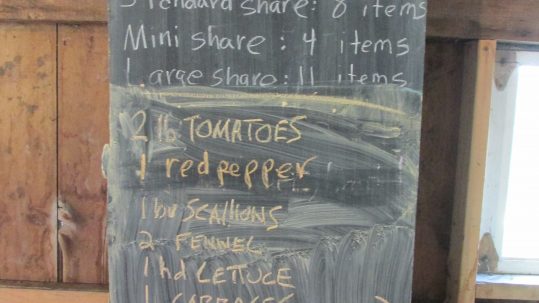 Standard share: 8 items
Mini share: 4 items
Large share: 11 items
2 lb TOMATOES
1 red pepper
1 bu SCAllIONS
2 FENNEL
1 hd LETTUCE
1